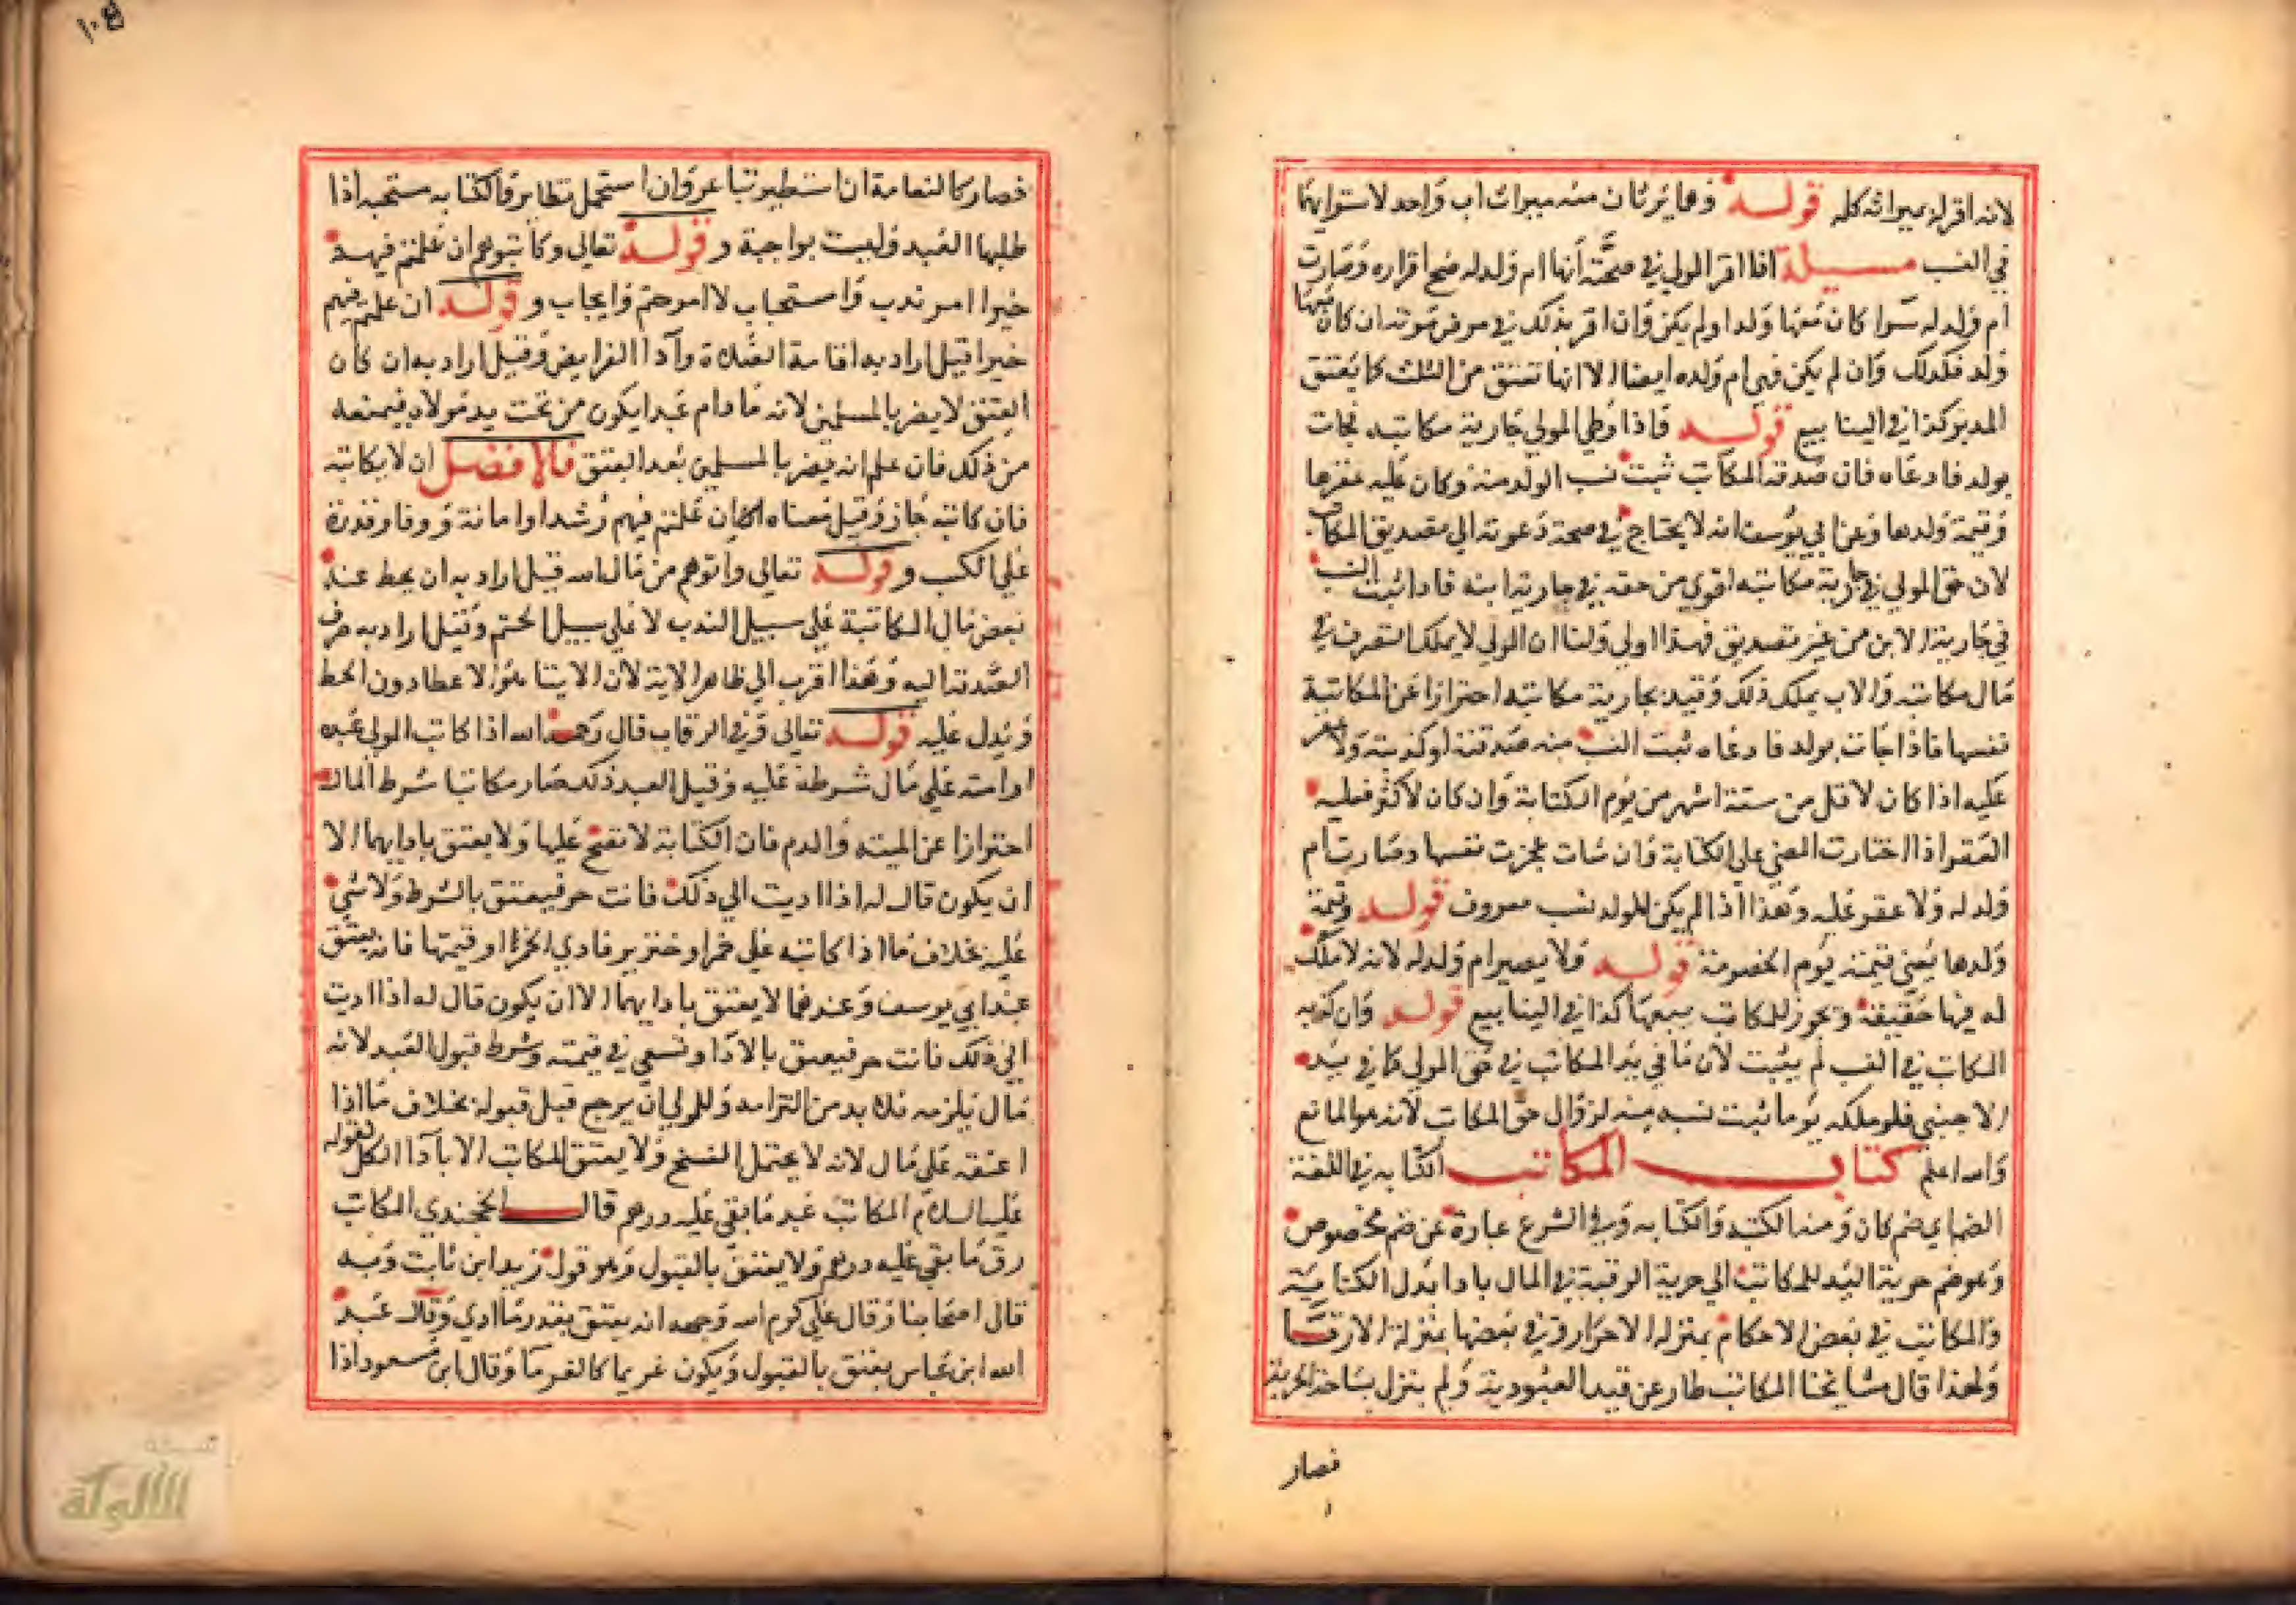 لانه اقر له بميراثه كله قوله وهما يرثان منه ميراث اب واحد لاستوايهما
في النسب مسيلة اذا اقر المولي في صحته أنها ام ولد له صح اقراره وصارت
ام ولد له سوا كان معها ولد او لم يكن وان اقر بذلك في مرض موته ان كان معها
ولد فكذلك وان لم يكن فهي ام ولده ايضا الا انها تعتق من الثلث كما يعتق
المدبر كذا في الينابيع قوله فاذا وطي المولي جارية مكاتبه فجات
بولد فادعاه فان صدقه المكاتب ثبت نسب الولد منه وكان عليه عقرها
وقيمة ولدها وعن ابي يوسف انه لا يحتاج في صحة دعوته الي تصديق المكاتب
لان حق المولي في جارية مكاتبه اقوي من حقه في جارية ابنه فاذا ثبت النسب
في جارية الابن من غير تصديق فهذا اولي ولنا ان المولي لا يملك التصرف في
مال مكاتبه والاب يملك ذلك وقيد بجارية مكاتبه احترازا عن المكاتبة
نفسها فاذا جات بولد فادعاه ثبت النسب منه صدقته او كذبته ولا عقر
عليه اذا كان لاقل من ستة اشهر من يوم الكتابة وان كان لاكثر فعليه
العقر اذا اختارت المضي علي الكتابة وان شات عجزت نفسها وصارت ام
ولد له ولا عقر عليه وهذا اذا لم يكن للولد نسب معروف قوله وقيمة
ولدها يعني قيمته يوم الخصومة قوله ولا يصير ام ولد له لانه لا ملك
له فيها حقيقة ويجوز للمكاتب بيعها كذا في الينابيع قوله وان كذبه
المكاتب في النسب لم يثبت لان ما في يد المكاتب في حق المولي كما في يد
الاجنبي فلو ملكه يوما ثبت نسبه منه لزوال حق المكاتب لانه هو المانع
والله اعلم كتاب المكاتب الكتابة في اللغة
الضم اي ضم كان ومنه الكتبه والكتابه وفي الشرع عبارة عن ضم مخصوص
وهو ضم حرية اليد للمكاتب الي حرية الرقبة في المال بادا بدل الكتابة
والمكاتب في بعض الاحكام بمنزلة الاحرار وفي بعضها بمنزلة الارقا
ولهذا قال مشايخنا المكاتب طار عن قيد العبودية ولم ينزل بساحة الحرية
فصار
١٠٥
فصار كالنعامة ان استطير تباعر وان استحمل تطاير فالكتابه مستحبه اذا
طلبها العبد وليست بواجبة وقوله تعالي وكاتبوهم ان علمتم فيهم
خيرا امر ندب واستحباب لا امر حتم وايجاب وقوله ان علمتم فيهم
خيرا قيل اراد به اقامة الصلاة وآدا الفرايض وقيل اراد به ان كان
العتق لا يضر بالمسلمين لانه ما دام عبدا يكون من تحت يد مولاه فيمنعه
من ذلك فان علم انه يضر بالمسلمين بعد العتق فالافضل ان لا يكاتبه
فان كاتبه جاز وقيل معناه ان علمتم فيهم رشدا وامانة ووفا وقدرة
علي الكسب وقوله تعالي وآتوهم من مال الله قيل اراد به ان يحط عنه
بعض مال المكاتبة علي سبيل الندب لا علي سبيل الحتم وقيل اراد به صرف
الصدقة اليه وهذا اقرب الي ظاهر الاية لان الايتا هو الاعطا دون الحط
ويدل عليه قوله تعالي وفي الرقاب قال رحمه الله اذا كاتب المولي عبده
او امته علي مال شرطه عليه وقبل العبد ذلك صار مكاتبا شرط المال
احترازا عن الميته والدم فان الكتابة لا تصح عليها ولا يعتق بادايهما الا
ان يكون قال له اذا اديت الي ذلك فانت حر فيعتق بالشرط ولا شي
عليه بخلاف ما اذا كاتبه علي خمر او خنزير فادي الخمر او قيمتها فانه يعتق
عند ابي يوسف وعندهما لا يعتق بادايهما الا ان يكون قال له اذا اديت
الي ذلك فانت حر فيعتق بالادا ويسعي في قيمته وشرط قبول العبد لانه
مال يلزمه فلا بد من التزامه وللمولي ان يرجع قبل قبوله بخلاف ما اذا
اعتقه علي مال لانه لا يحتمل الفسخ ولا يعتق المكاتب الا بآدا الكل لقوله
عليه السلام المكاتب عبد ما بقي عليه درهم قال الخجندي المكاتب
رق ما بقي عليه درهم ولا يعتق بالقبول وهو قول زيد ابن ثابت وبه
قال اصحابنا وقال علي كرم الله وجهه انه يعتق بقدر ما ادي وقال عبد
الله ابن عباس يعتق بالقبول ويكون غريما كالغرما وقال ابن مسعود اذا
شبكة
الألوكة